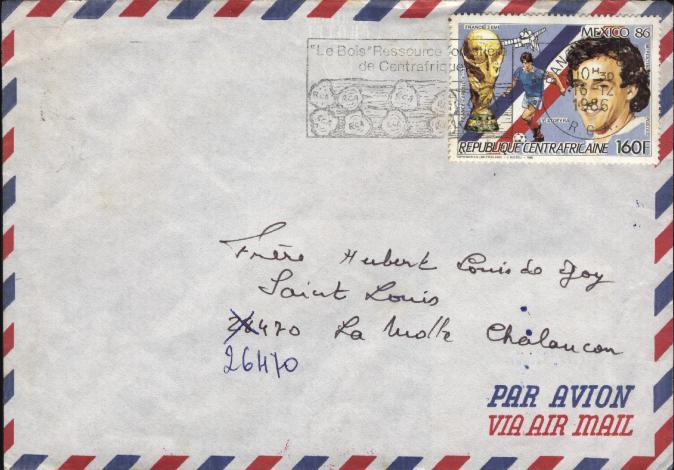 "Le Bois" Ressource
de Centrafrique
FRANCE 3EME
MEXICO 86
BAN
10 H 30
16 12
1986
R C
Y. STOPYRA
REPUBLIQUE CENTRAFRICAINE 160F
Frère Hubert Louis de
Saint Louis
470 La Motte Chalancon
26470
PAR AVION
VIA AIR MAIL